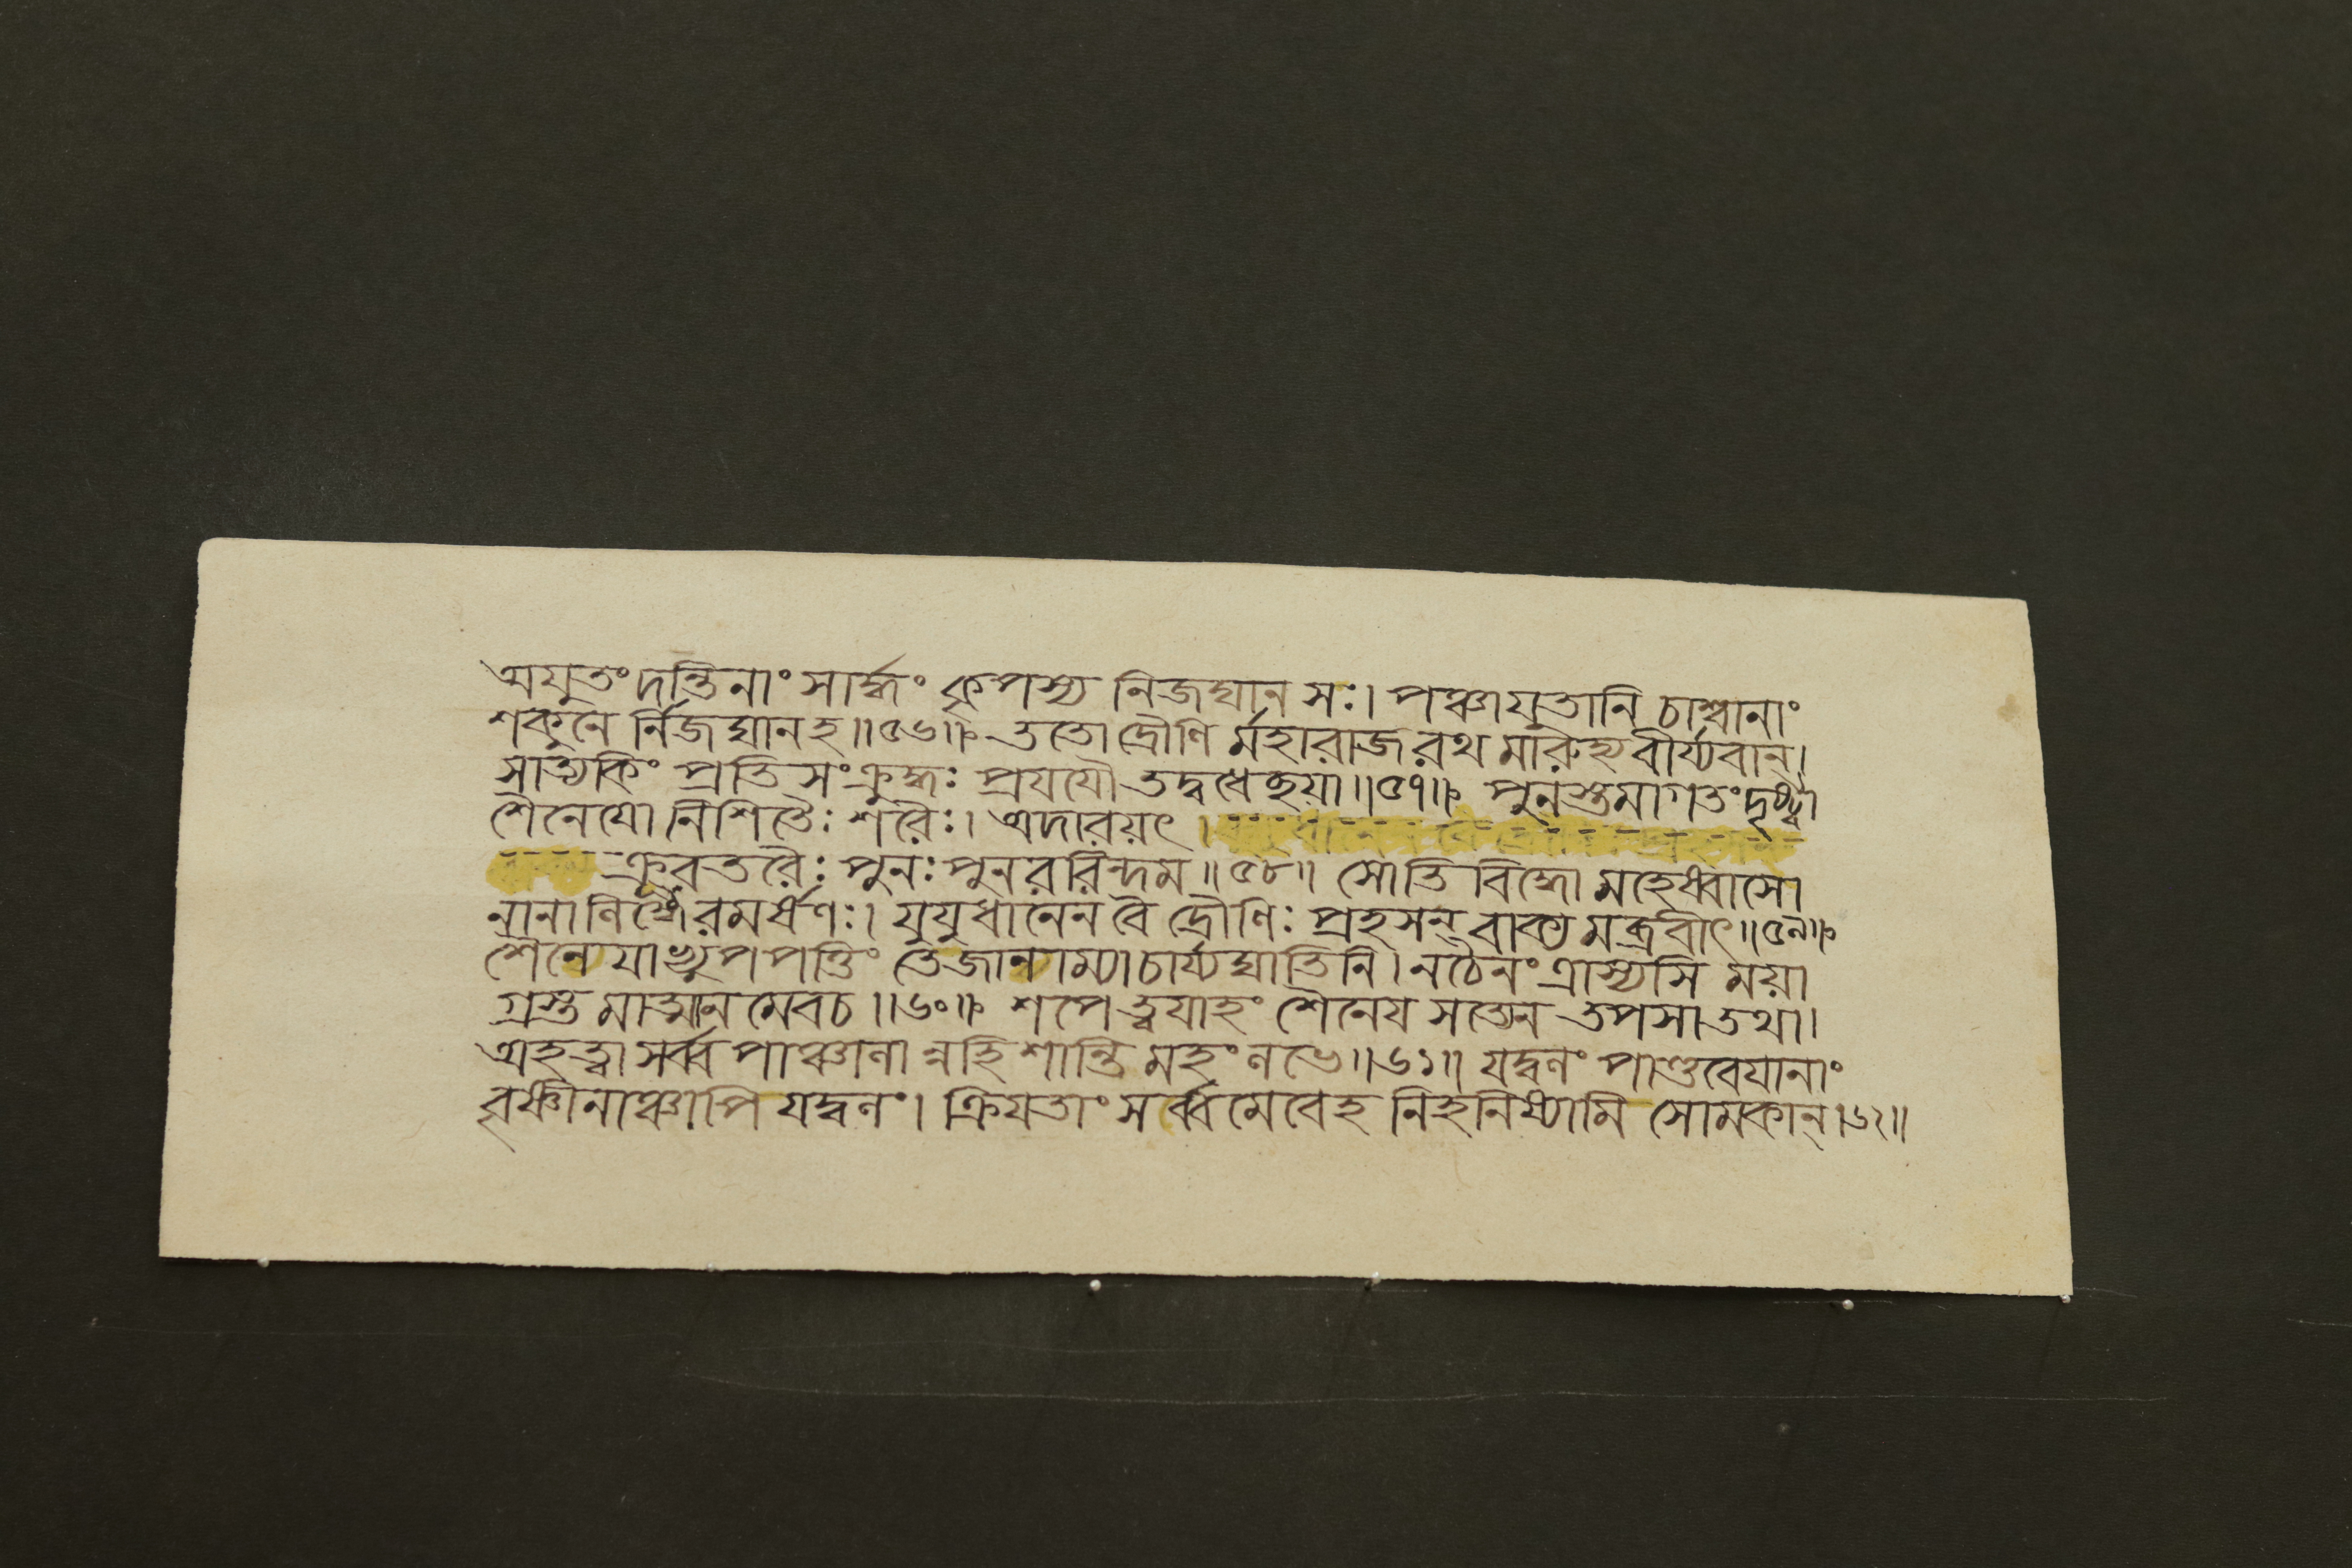 অযুতং দন্তিনাং সার্দ্ধং কৃপস্য নিজঘান সঃ। পঞ্চাযুতানি চাশ্বানাং
শকুনে র্নিজঘান হ॥৫৬॥ ততো দ্রৌণি র্মহারাজ রথ মারুহ্য বীর্য্যবান্।
সাত্যকিং প্রতি সংক্রুদ্ধঃ প্রযযৌ তদ্বধেচ্ছয়া॥৫৭॥ পুনস্তমাগতং দৃষ্ট্বা
শৈনেযো নিশিতৈঃ শরৈঃ। অদারয়ৎ ।
ক্রুরতরৈঃ পুনঃ পুনররিন্দম॥৫৮॥ সোতি বিদ্ধো মহেষ্বাসো
নানালিঙ্গৈরমর্ষণঃ। যুযুধানেন বৈ দ্রৌণিঃ প্রহসন্ বাক্য মব্রবীৎ॥৫৯॥
শৈনেযাভ্যুপপত্তিং তে জানাম্যাচার্য্যঘাতিনি। নচৈনং ত্রাস্যসি ময়া
গ্রস্ত মাত্মান মেবচ॥৬০॥ শপে ত্বযাহং শৈনেয সত্যেন তপসা তথা।
অহত্বা সর্ব্ব পাঞ্চানা ন্নহি শান্তি মহং লভে॥৬১॥ যদ্বলং পাণ্ডবেযানাং
বৃষ্ণীনাঞ্চাপি যদ্বলং। ক্রিযতাং সর্ব্বমেবেহ নিহনিষ্যামি সোমকান্।৬২॥